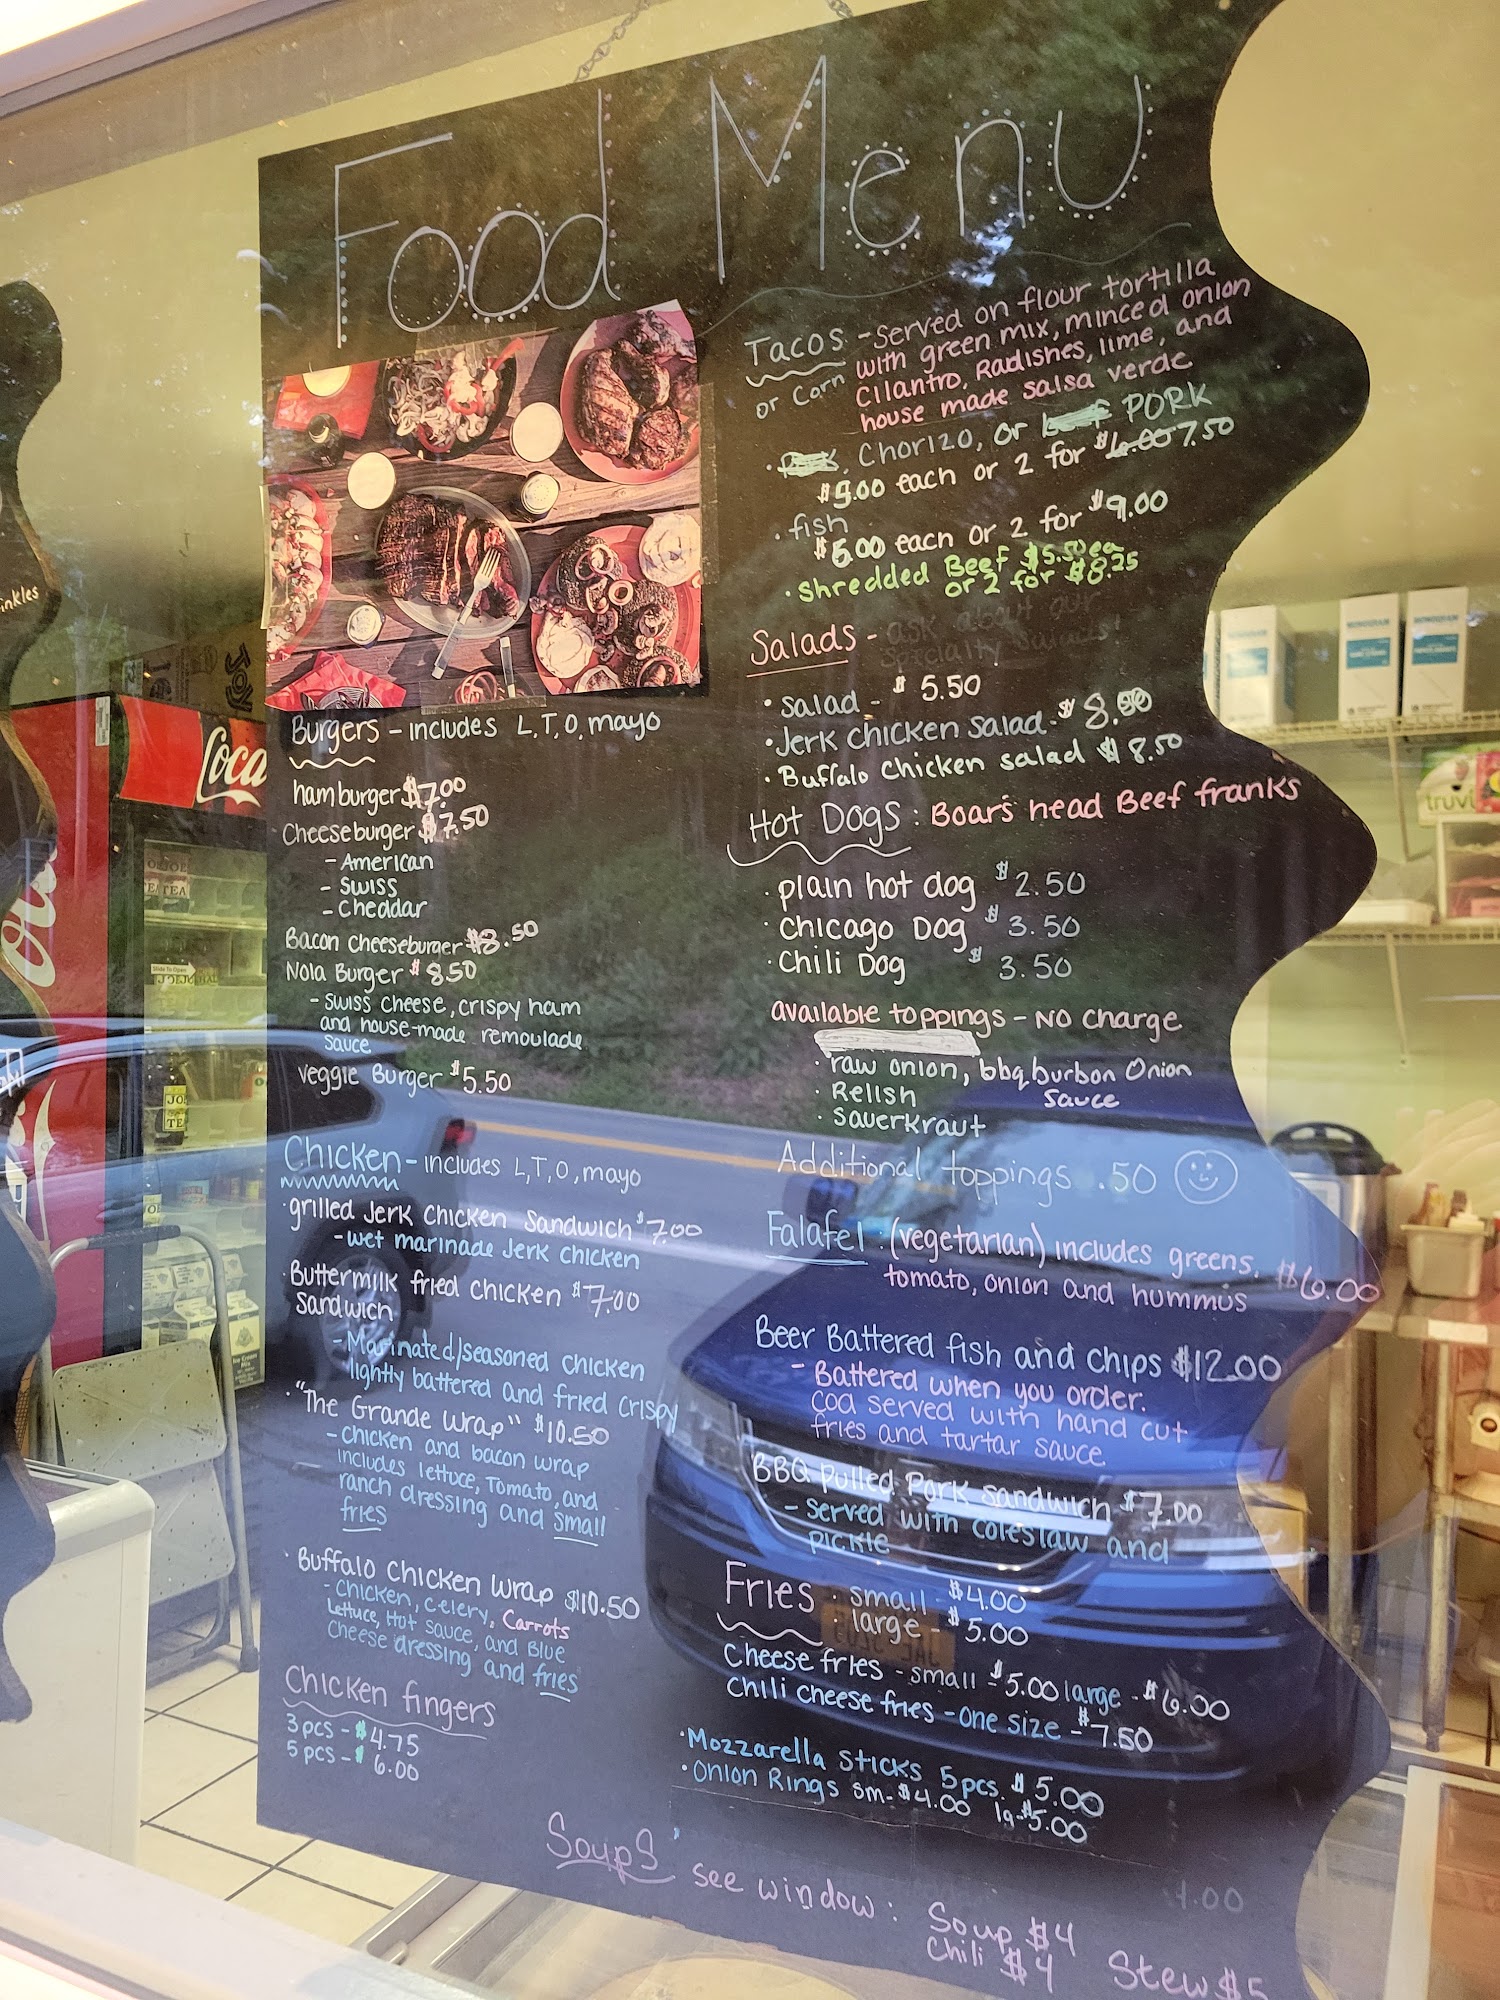 Food Menu
Tacos - Served on flour tortilla
or Corn with green mix, minced onion
Cilantro, Radishes, lime, and
house made salsa verde
· Chorizo, or PORK
$5.00 each or 2 for $6.00 7.50
· fish
$5.00 each or 2 for $9.00
· shredded Beef $5.50 ea
or 2 for $8.25
Salads - ask about our
specialty salads!
· salad - $5.50
· Jerk chicken salad - $8.50
· Buffalo chicken salad $8.50
Hot Dogs: Boars head Beef franks
· plain hot dog $2.50
· Chicago Dog $3.50
· Chili Dog $3.50
available toppings - NO charge
· raw onion, bbq burbon Onion
Sauce
· Relish
· sauerkraut
Additional toppings .50
Falafel · (vegetarian) includes greens,
tomato, onion and hummus $6.00
Beer Battered fish and chips $12.00
- Battered when you order.
cod served with hand cut
fries and tartar sauce
BBQ Pulled Pork sandwich $7.00
- served with coleslaw and
pickle
Fries · small - $4.00
· large - $5.00
Cheese fries - small - $5.00 large - $6.00
Chili cheese fries - one size - $7.50
· Mozzarella sticks 5pcs. $5.00
· Onion Rings sm - $4.00 lg - $5.00
Burgers - includes L, T, O, mayo
hamburger $7.00
Cheeseburger $7.50
- American
- Swiss
- Cheddar
Bacon cheeseburger $8.50
Nola Burger $8.50
- Swiss cheese, crispy ham
and house-made remoulade
sauce
veggie Burger $5.50
Chicken - includes L, T, O, mayo
· grilled Jerk Chicken Sandwich $7.00
- wet marinade Jerk chicken
· Buttermilk fried chicken $7.00
Sandwich
- Marinated/seasoned chicken
lightly battered and fried crispy
· "The Grande Wrap" $10.50
- chicken and bacon wrap
includes lettuce, Tomato, and
ranch dressing and small
fries
· Buffalo Chicken Wrap $10.50
- Chicken, celery, Carrots
Lettuce, Hot sauce, and Blue
Cheese dressing and fries
Chicken fingers
3 pcs - $4.75
5 pcs - $6.00
Soups see window: Soup $4
Chili $4 Stew $5
inkles
Coca
truvi